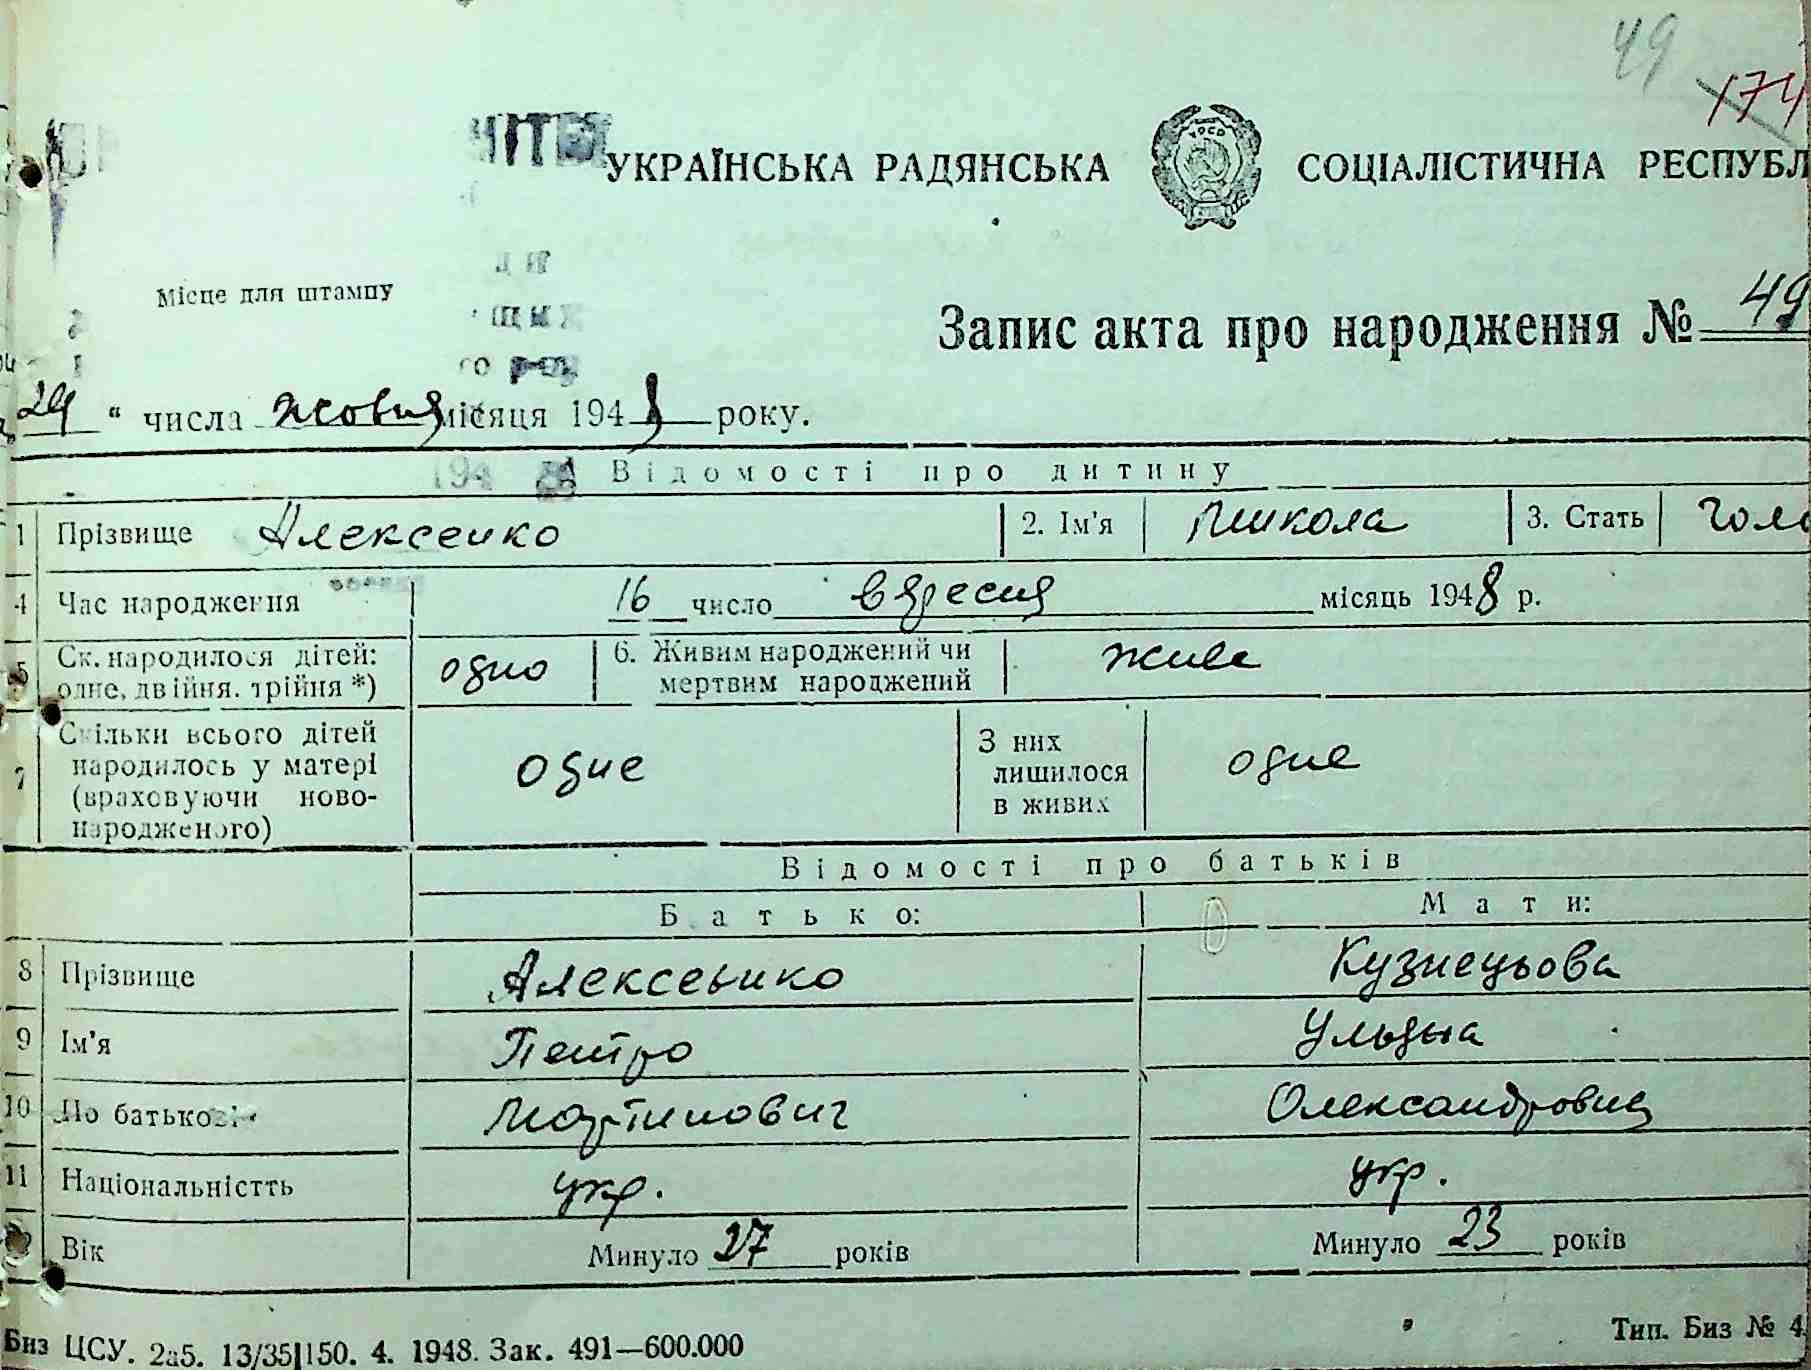 49
174
УКРАЇНСЬКА РАДЯНСЬКА СОЦІАЛІСТИЧНА РЕСПУБЛ
УРСР
Місце для штампу
Запис акта про народження № 49
"29" числа жовтня місяця 1948 року.
194
Відомості про дитину
1 Прізвище Алексеико 2. Ім'я Микола 3. Стать Чоло
4 Час народження 16 число вересня місяць 1948 р.
5 Ск. народилося дітей: одне, двійня. трійня *) одно 6. Живим народжений чи мертвим народжений живе
7 Скільки всього дітей народилось у матері (враховуючи новонародженого) одне З них лишилося в живих одне
Відомості про батьків
Батько: Мати:
8 Прізвище Алексеьнко Кузнецьова
9 Ім'я Петро Ульяна
10 По батькові Мартинович Олександровна
11 Національністть укр. укр.
12 Вік Минуло 27 років Минуло 23 років
Биз ЦСУ. 2а5. 13/35|150. 4. 1948. Зак. 491—600.000 Тип. Биз № 4